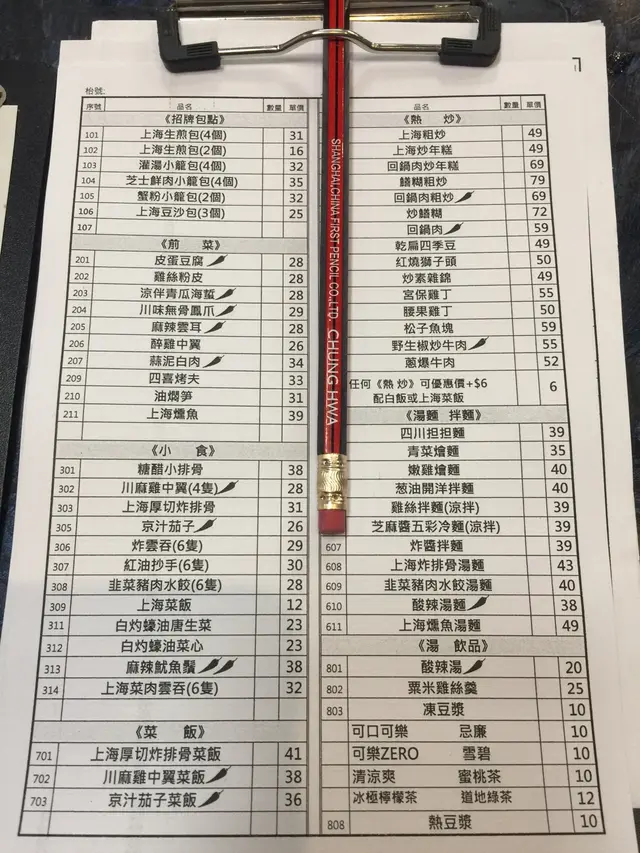 枱號:
序號 品名 數量 單價
《招牌包點》
101 上海生煎包(4個) 31
102 上海生煎包(2個) 16
103 灌湯小籠包(4個) 32
104 芝士鮮肉小籠包(4個) 35
105 蟹粉小籠包(2個) 32
106 上海豆沙包(3個) 25
107
《前 菜》
201 皮蛋豆腐 28
202 雞絲粉皮 28
203 涼伴青瓜海蜇 28
204 川味無骨鳳爪 29
205 麻辣雲耳 28
206 醉雞中翼 26
207 蒜泥白肉 34
209 四喜烤夫 33
210 油燜笋 31
211 上海燻魚 39
《小 食》
301 糖醋小排骨 38
302 川麻雞中翼(4隻) 28
303 上海厚切炸排骨 31
305 京汁茄子 26
306 炸雲吞(6隻) 29
307 紅油抄手(6隻) 30
308 韭菜豬肉水餃(6隻) 28
309 上海菜飯 12
311 白灼蠔油唐生菜 23
312 白灼蠔油菜心 23
313 麻辣魷魚鬚 38
314 上海菜肉雲吞(6隻) 32
《菜 飯》
701 上海厚切炸排骨菜飯 41
702 川麻雞中翼菜飯 38
703 京汁茄子菜飯 36
品名 數量 單價
《熱 炒》
上海粗炒 49
上海炒年糕 49
回鍋肉炒年糕 69
鱔糊粗炒 79
回鍋肉粗炒 69
炒鱔糊 72
回鍋肉 59
乾扁四季豆 49
紅燒獅子頭 50
炒素雜錦 49
宮保雞丁 55
腰果雞丁 50
松子魚塊 59
野生椒炒牛肉 55
蔥爆牛肉 52
任何《熱 炒》可優惠價+$6
配白飯或上海菜飯 6
《湯麵 拌麵》
四川担担麵 39
青菜燴麵 35
嫩雞燴麵 40
葱油開洋拌麵 40
雞絲拌麵(涼拌) 39
芝麻醬五彩冷麵(涼拌) 39
607 炸醬拌麵 39
608 上海炸排骨湯麵 43
609 韭菜豬肉水餃湯麵 40
610 酸辣湯麵 38
611 上海燻魚湯麵 49
《湯 飲品》
801 酸辣湯 20
802 粟米雞絲羹 25
803 凍豆漿 10
可口可樂 忌廉 10
可樂ZERO 雪碧 10
清涼爽 蜜桃茶 10
冰極檸檬茶 道地綠茶 12
808 熱豆漿 10
SHANGHAI,CHINA FIRST PENCIL CO.,LTD. CHUNG HWA